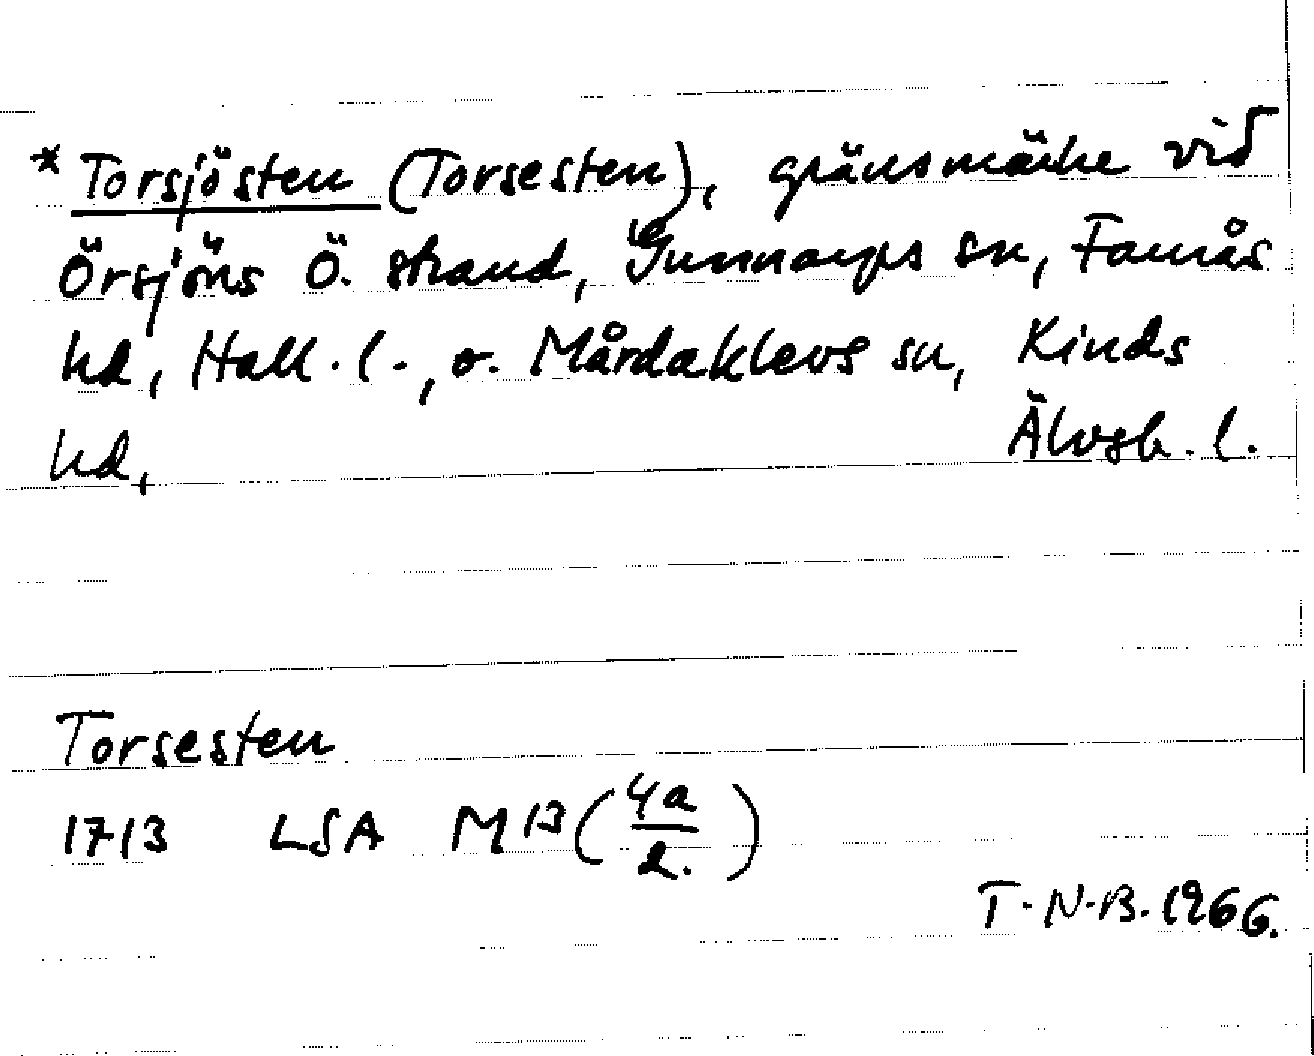 * Torsjösten (Torsesten), gränsmärke vid
Örsjöns Ö. strand, Gunnarps sn, Faurås
hd, Hall. l., o. Mårdaklevs sn, Kinds
hd, Älvsb. l.
Torsesten
1713 LSA M13 (4a/2.)
T.N.B. 1966.